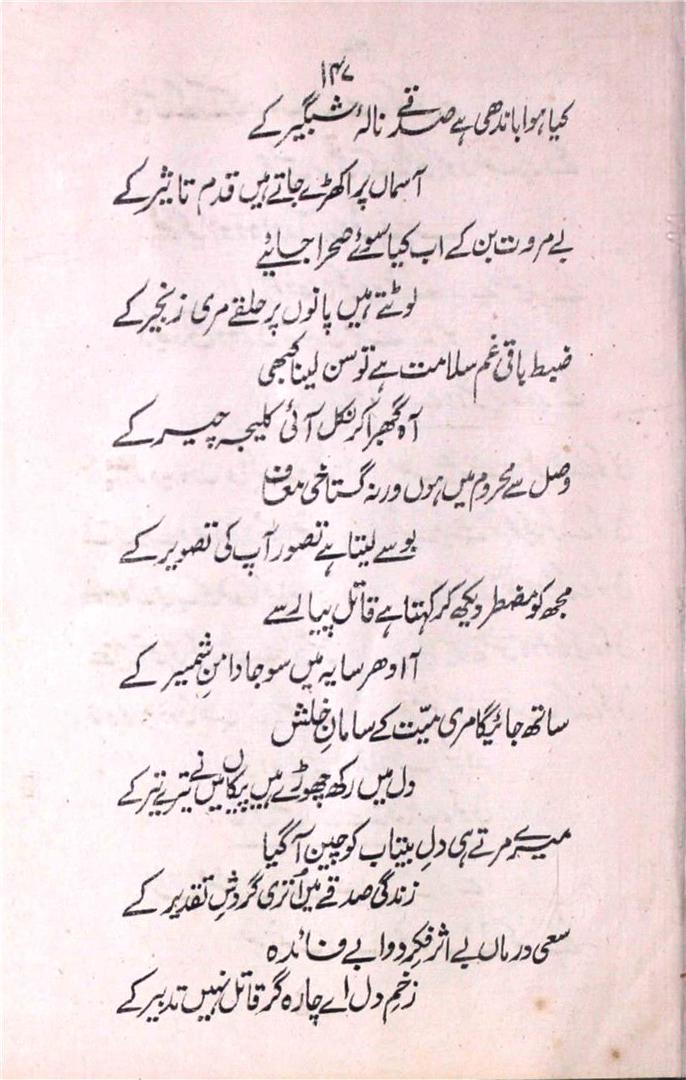 ۱۴۷
کیا ہوا باندھی ہے صدقے نالۂ شبگیر کے
آسماں پر اکھڑے جاتے ہیں قدم تاثیر کے
بے مروت بن کے اب کیا سوئے صحرا جائیے
لوٹتے ہیں پانوں پر حلقے مری زنجیر کے
ضبط باقی غم سلامت ہے تو سن لینا کبھی
آہ گھبرا کر نکل آئی کلیجہ چیر کے
وصل سے محروم میں ہوں ورنہ گستاخی معاف
بوسے لیتا ہے تصور آپ کی تصویر کے
مجھ کو مضطر دیکھ کر کہتا ہے قاتل پیار سے
آ ادھر سایہ میں سو جا دامنِ شمشیر کے
ساتھ جائیگا مری میّت کے سامانِ خلش
دل میں رکھ چھوڑے ہیں پیکاں میں نے تیرے تیر کے
میرے مرتے ہی دلِ بیتاب کو چین آ گیا
زندگی صدقے میں اُتری گردشِ تقدیر کے
سعی درماں بے اثر فکرِ دوا بے فائدہ
زخمِ دل اے چارہ گر قاتل نہیں تدبیر کے